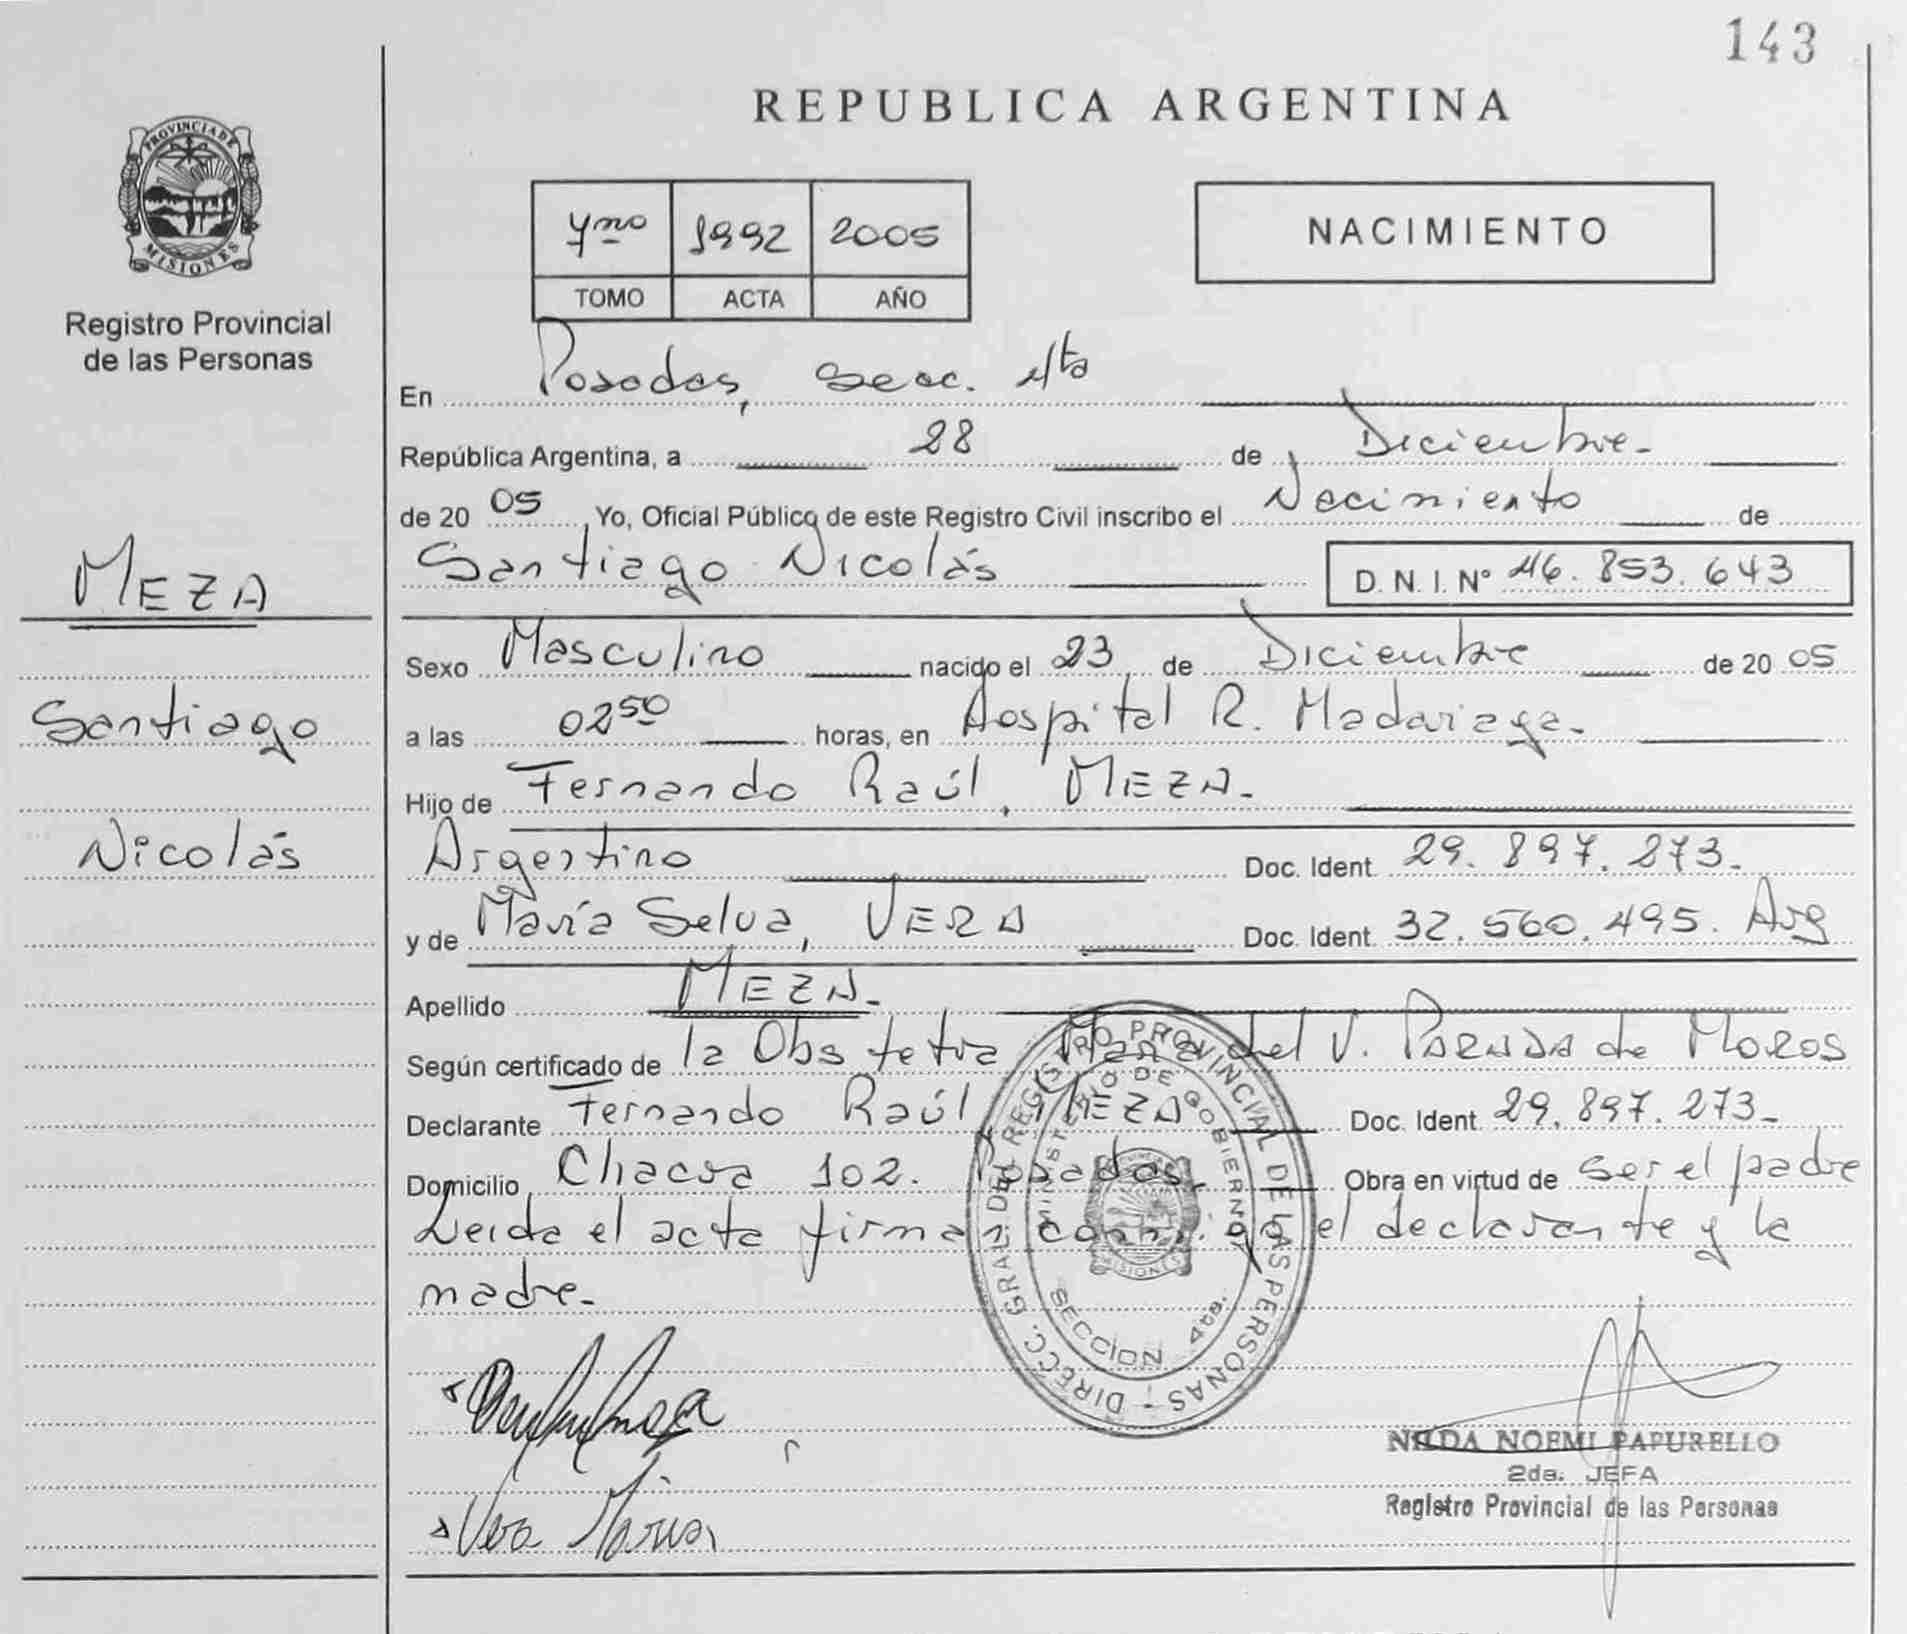 143
REPUBLICA ARGENTINA
PROVINCIA DE
MISIONES
Registro Provincial
de las Personas
4no 1992 2005
TOMO ACTA AÑO
NACIMIENTO
En Posadas, Secc. 4ta
República Argentina, a 28 de Diciembre.-
de 20 05 Yo, Oficial Público de este Registro Civil inscribo el Nacimiento de
Santiago Nicolás D. N. I. N° 46.853.643
MEZA
Santiago
Nicolás
Sexo Masculino nacido el 23 de Diciembre de 20 05
a las 02 50 horas, en Hospital R. Madariaga.-
Hijo de Fernando Raúl, MEZA.-
Argentino Doc. Ident. 29.897.273.-
y de María Selva, VERA Doc. Ident. 32.560.495. Arg
Apellido MEZA.-
Según certificado de la Obstetra María del V. PARADA de MOROS
Declarante Fernando Raúl MEZA Doc. Ident. 29.897.273.-
Domicilio Chacra 102. Posadas. Obra en virtud de ser el padre
Leida el acta firman conmigo el declarante y la
madre.-
DIRECC. GRAL. DEL REGISTRO PROVINCIAL DE LAS PERSONAS -
MINISTERIO DE GOBIERNO
SECCION 4ta.
MISIONES
Vera María
NILDA NOEMI PAPURELLO
2da. JEFA
Registro Provincial de las Personas